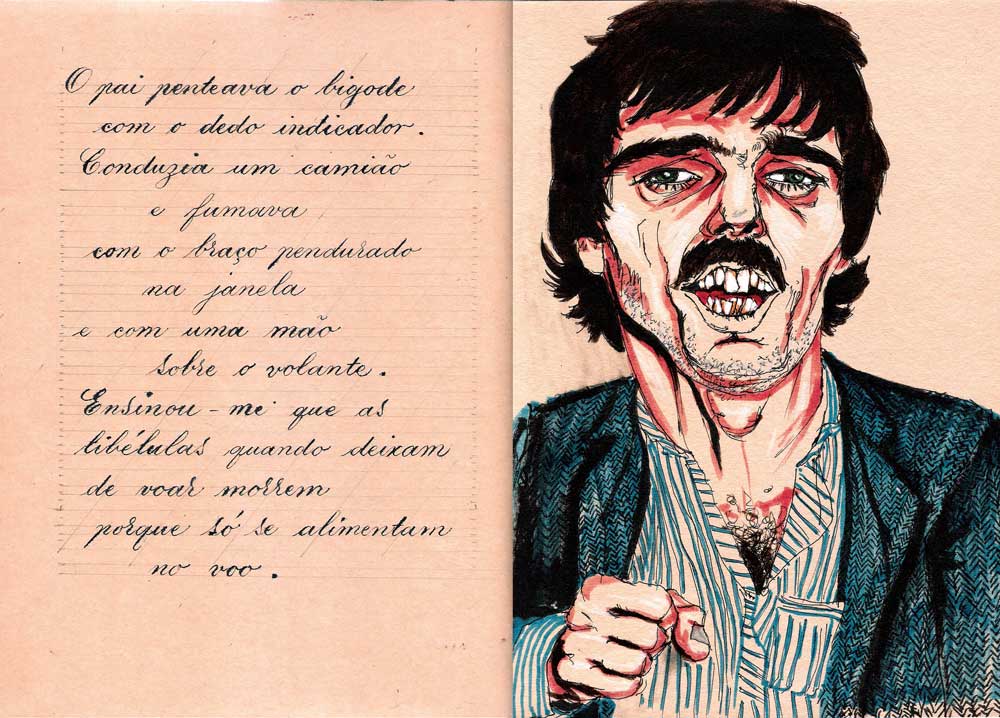 O pai penteava o bigode
com o dedo indicador.
Conduzia um camião
e fumava
com o braço pendurado
na janela
e com uma mão
sobre o volante.
Ensinou-me que as
libélulas quando deixam
de voar morrem
porque só se alimentam
no voo.